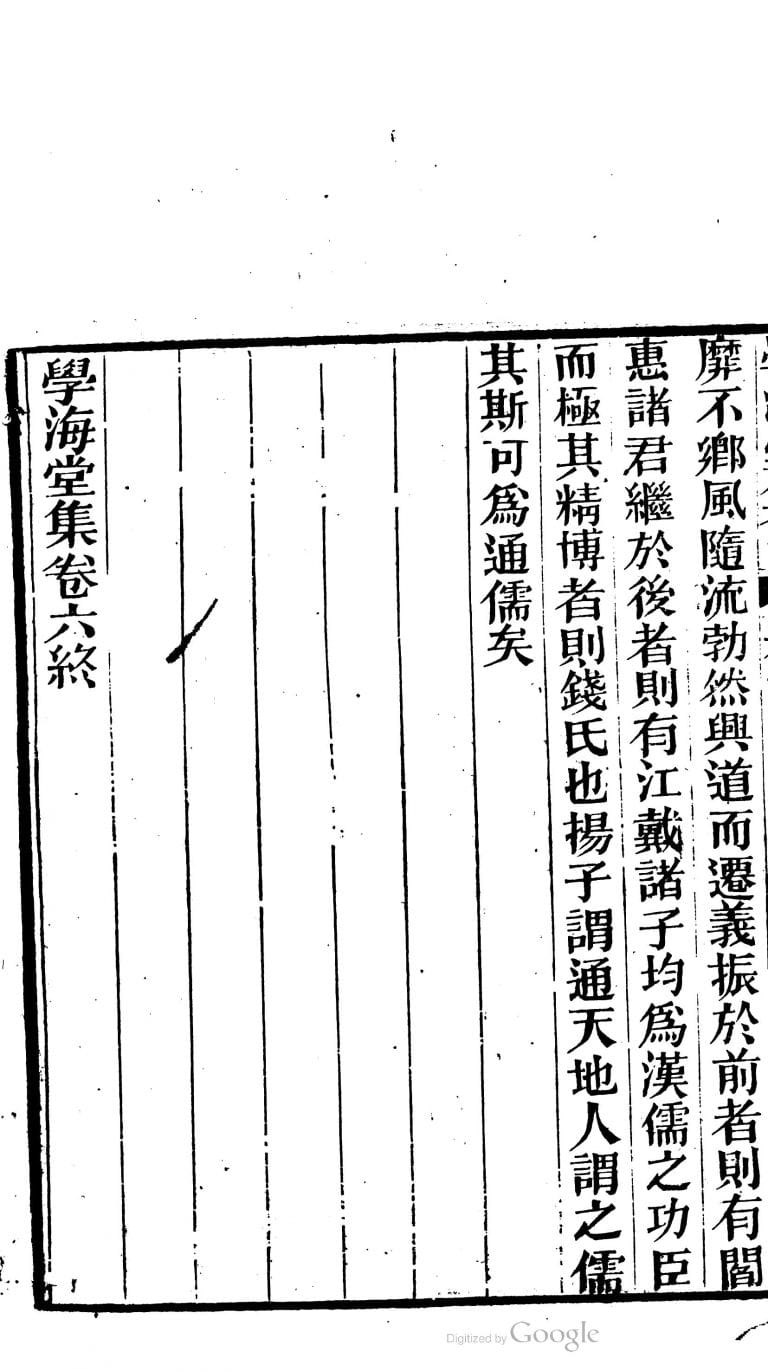 靡不鄕風隨流勃然興道而遷義振於前者則有閻
惠諸君繼於後者則有江戴諸子均爲漢儒之功臣
而極其精博者則錢氏也揚子謂通天地人謂之儒
其斯可爲通儒矣
學海堂集卷六終
Digitized by Google